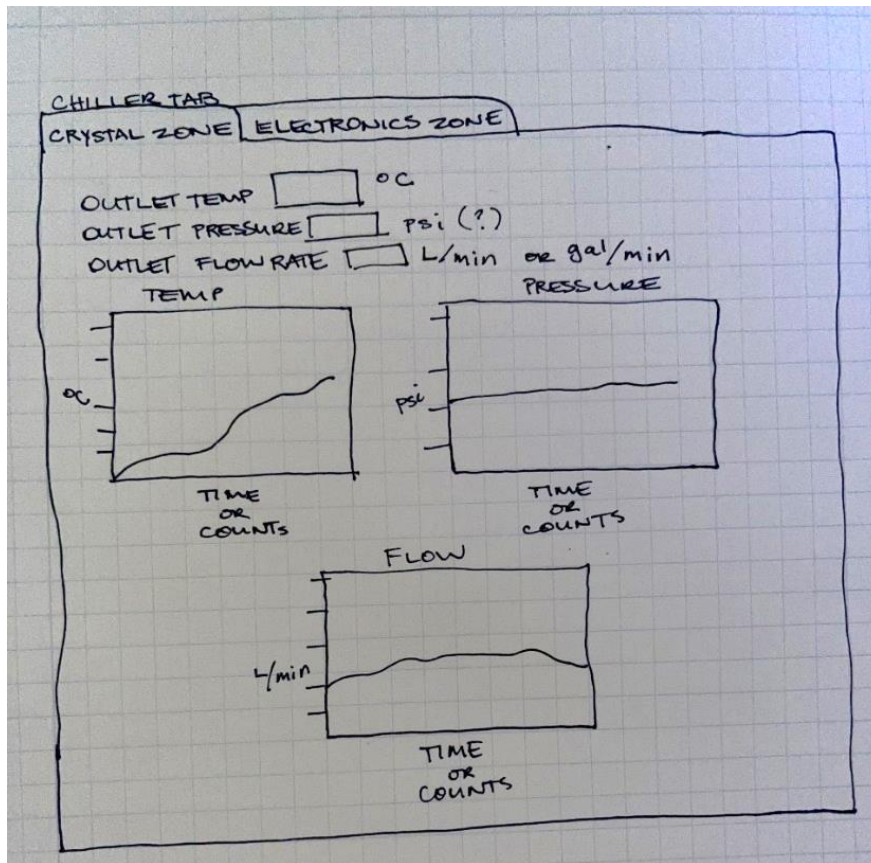 CHILLER TAB
CRYSTAL ZONE ELECTRONICS ZONE
OUTLET TEMP °C
OUTLET PRESSURE psi (?)
OUTLET FLOW RATE L/min or gal/min
TEMP
PRESSURE
°C
psi
TIME
OR
COUNTS
TIME
OR
COUNTS
FLOW
L/min
TIME
OR
COUNTS